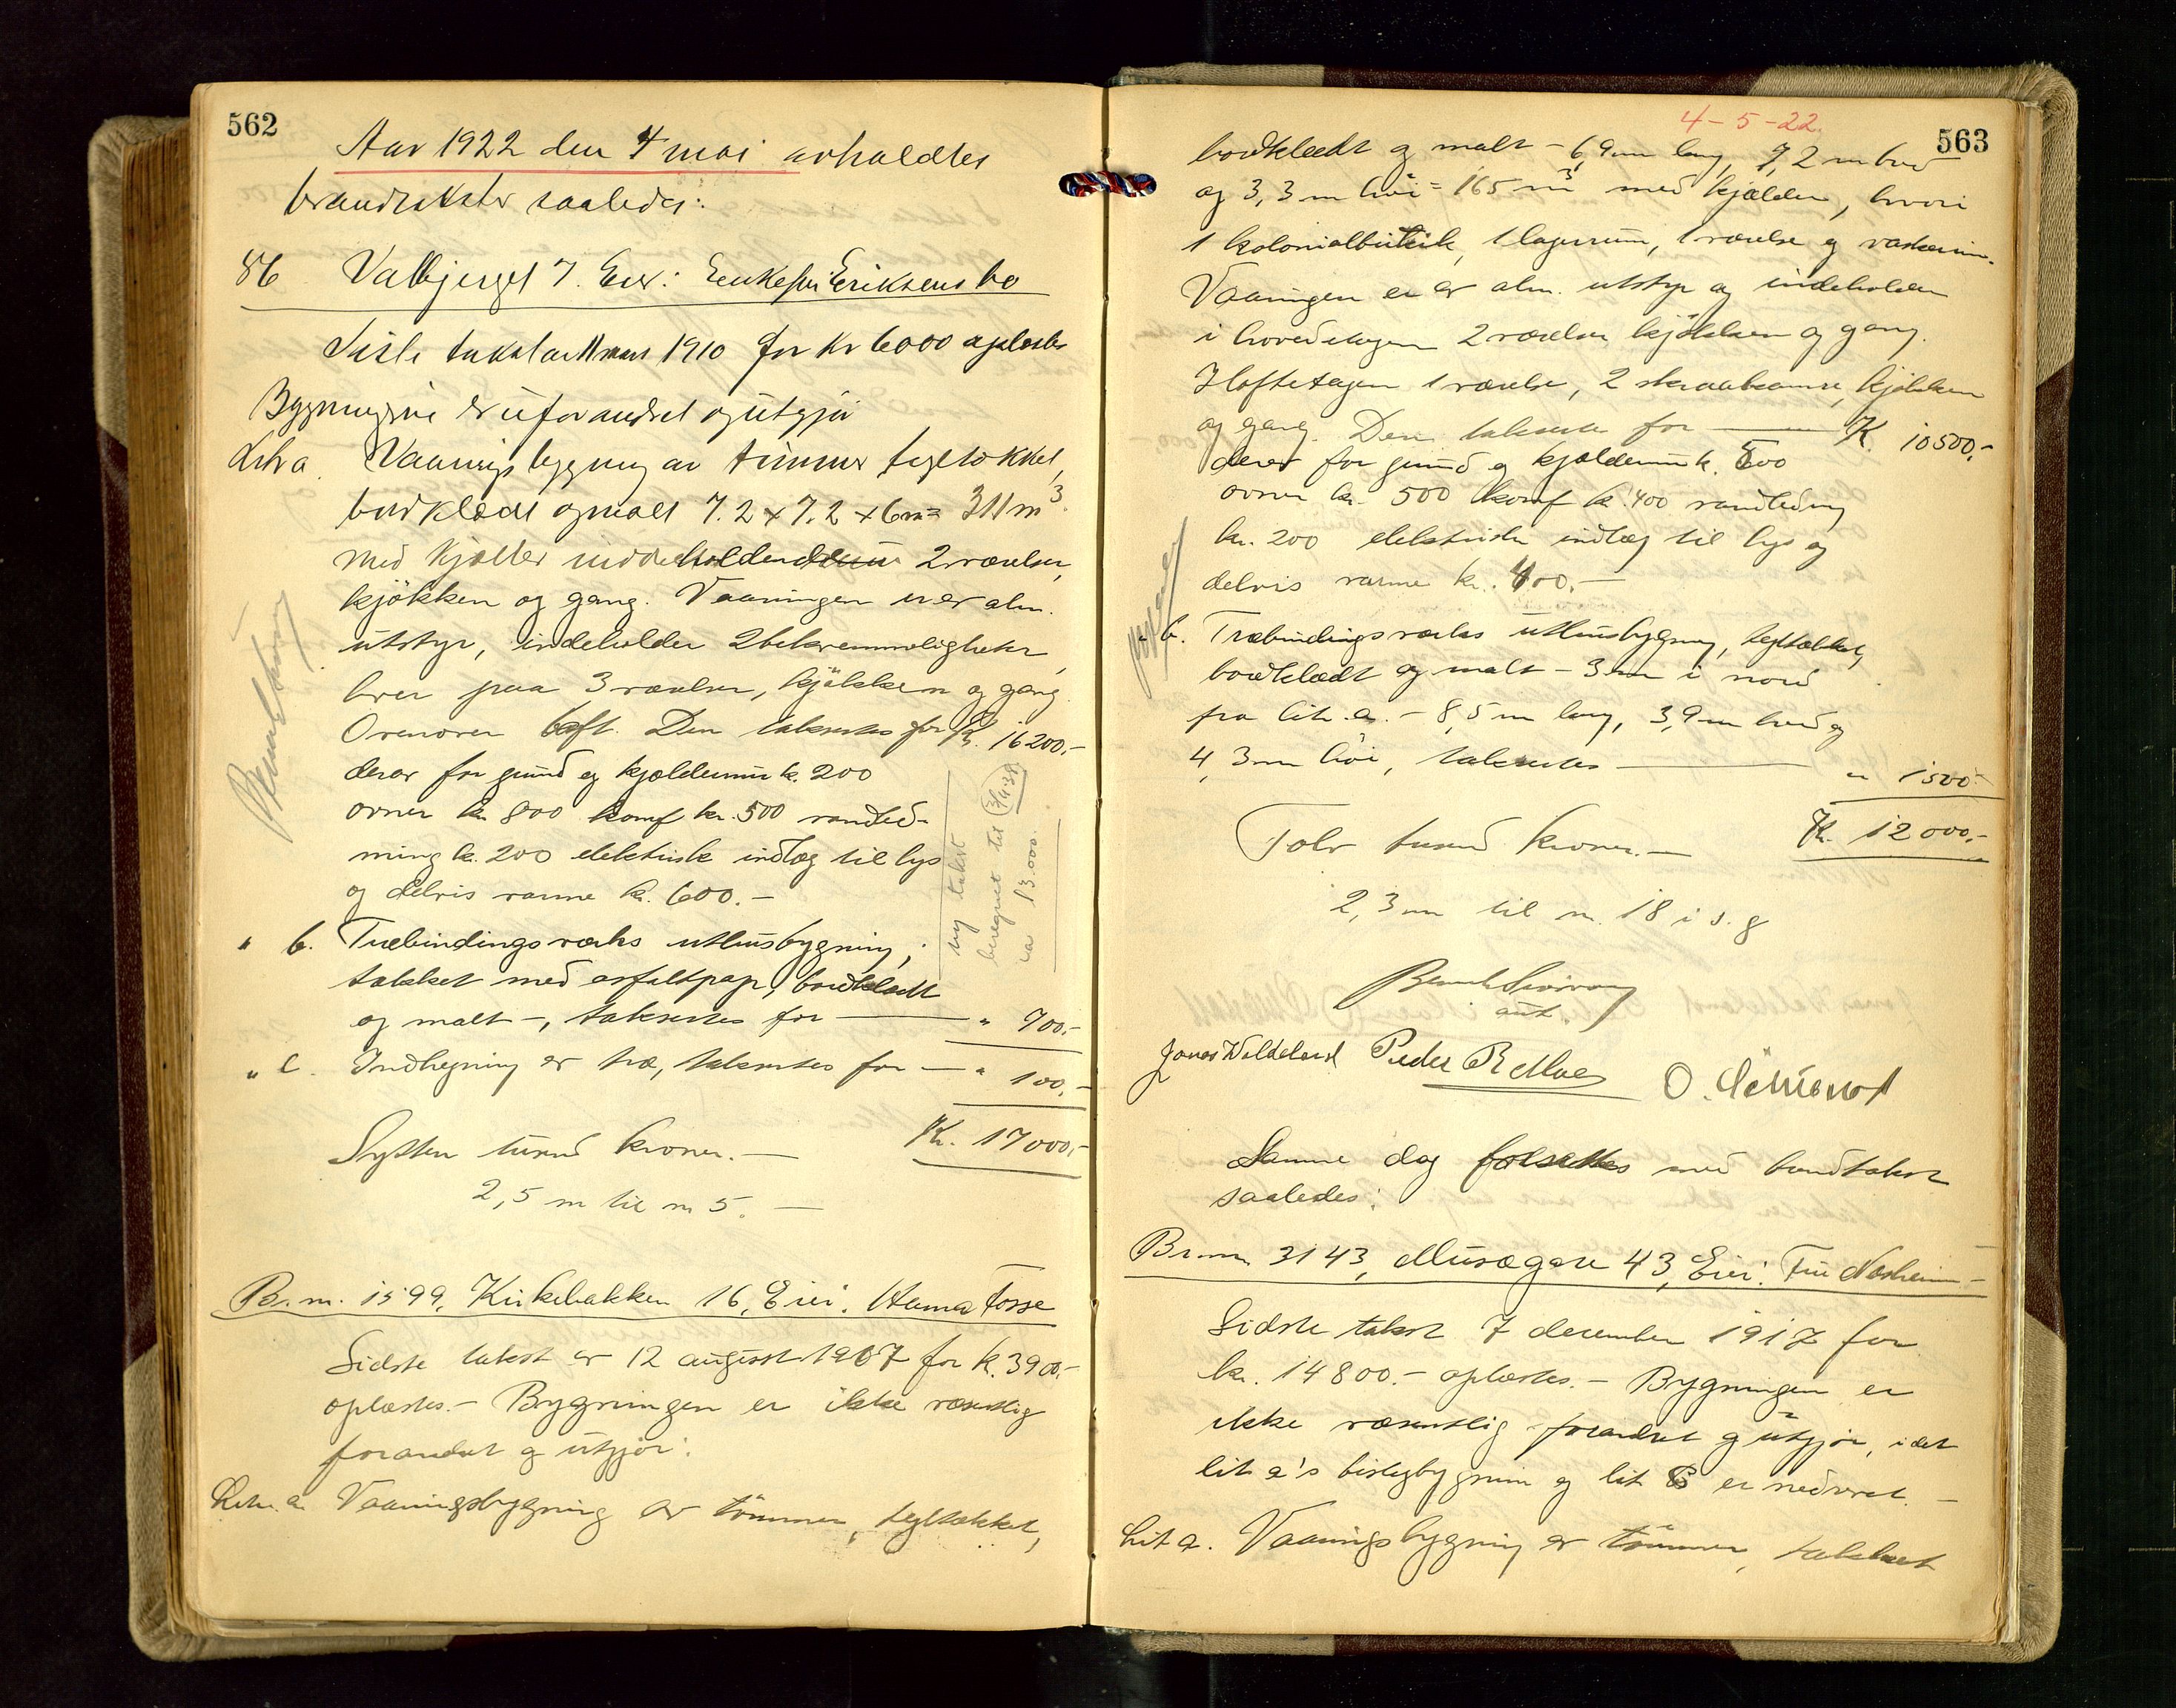 562
Aar 1922 den 4 mai avholdtes
brandtakster saaledes:
86 Valbjerget 7. Eier: Enkefru Eriksens bo
Siste takst av 11 mars 1910 for kr 6000 oplæstes
Bygningerne er uforandret og utgjør
Litra a Vaaningsbygning av tømmer tegltækket,
bordklædt og malt 7.2 x 7.2 x 6m = 311 m³.
med kjælder indeholdende 2 værelser,
kjøkken og gang. Vaaningen er av alm.
utstyr, indeholder 2 bekvemmeligheter,
hver paa 3 værelser, kjøkken og gang.
Ovenover loft. Den takseres for Kr. 16200.-
derav for grund og kjældermur kr. 200
ovner kr 800 komf kr. 500 vandled-
ning kr. 200 elektrisk indlæg til lys
og delvis varme kr. 600.-
ny takst
beregnet til
ca 13.000.
" b. Træbindingsverks uthusbygning,
tækket med asfaltpap, bordklædt
og malt -, takseres for — " 700.-
" c. Indhegning av træ, takseres for — " 100.-
Kr. 17000.-
Sytten tusend kroner.-
2,5 m til nr 5. —
Br. nr. 1599, Kirkebakken 16, Eier: Hanna Fosse
Sidste takst av 12 august 1907 for kr. 3900.-
oplæstes.- Bygningen er ikke væsentlig
forandret og utgjør:
Litr. a. Vaaningsbygning av tømmer, tegltækket,
4-5-22.
563
bordklædt og malt - 6,9 m lang, 7,2 m bred
og 3,3 m høi = 165 m³ med kjælder, hvori
1 kolonialbutik, 1 lagerrum, 1 værelse og vaskerum.
Vaaningen er av alm. utstyr og indeholder
i hovedetagen 2 værelser kjøkken og gang.
I loftetagen 1 værelse, 2 skraakamre, kjøkken
og gang. Den takseres for — K. 10500.-
derav for grund og kjældermur k. 500
ovner kr. 500 komf kr. 400 vandledning
kr. 200 elektriske indlæg til lys og
delvis varme kr. 400.-
" b. Træbindingsverks uthusbygning, tegltækket,
bordklædt og malt - 3 m i nord
fra litr. a. - 8,5 m lang, 3,9 m bred og
4,3 m høi, takseres — " 1500.-
Kr. 12000.-
Tolv tusend kroner.-
2,3 m til nr. 18 i s. g
Jonas Waldeland Peder R Moe
Samme dag fortsattes med brandtakst
saaledes:
Br. nr 3143, Musægaten 43, Eier: Fru Næsheim-
Sidste takst 7 december 1917 for
kr. 14800.- oplæstes.- Bygningen er
ikke væsentlig forandret og utgjør, idet
lit a's bislagbygning og lit B er nedrevet. -
Lit a. Vaaningsbygning av tømmer, tækket